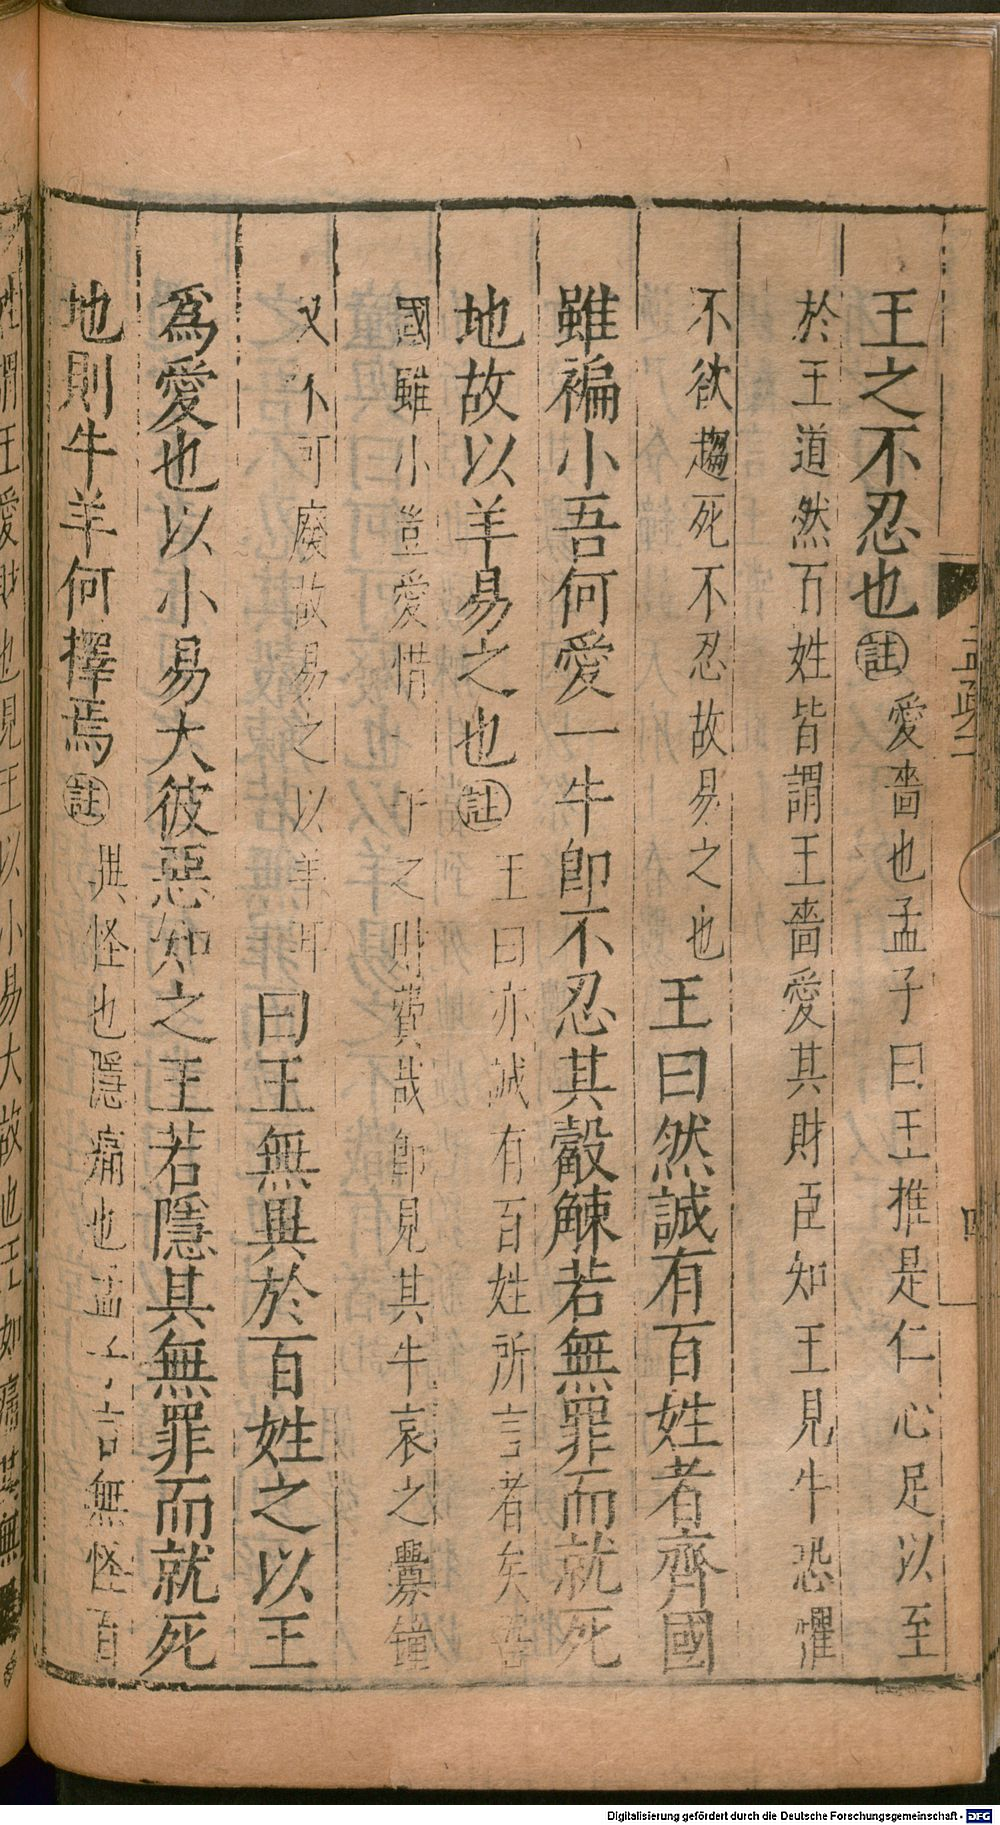 王之不忍也註愛嗇也孟子曰王推是仁心足以至
於王道然百姓皆謂王嗇愛其財臣知王見牛恐懼
不欲趨死不忍故易之也王曰然誠有百姓者齊國
雖褊小吾何愛一牛即不忍其觳觫若無罪而就死
地故以羊易之也註王曰亦誠有百姓所言者矣吾
國雖小豈愛惜一牛之財費哉即見其牛哀之釁鐘
又不可廢故易之以羊耳曰王無異於百姓之以王
為愛也以小易大彼惡知之王若隱其無罪而就死
地則牛羊何擇焉註異怪也隱痛也孟子言無怪百
姓謂王愛財也見王以小易大故也王如痛其無
四
Digitalisierung gefördert durch die Deutsche Forschungsgemeinschaft - DFG